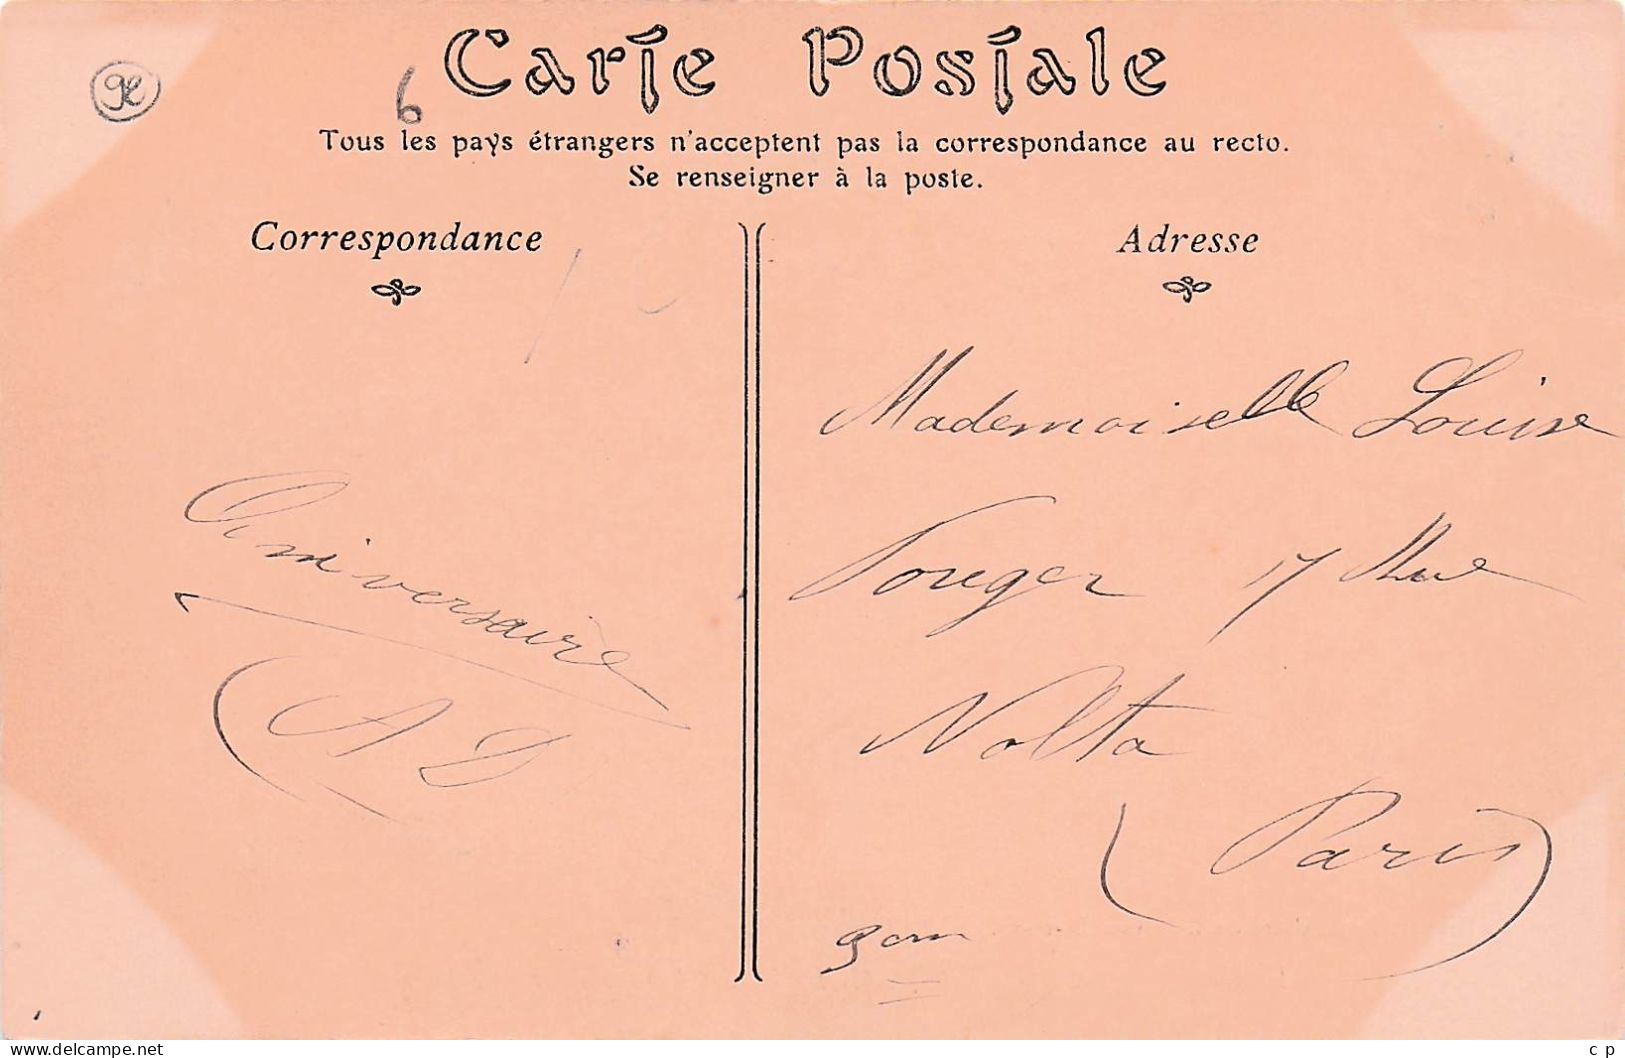 6
Carte Postale
Tous les pays étrangers n'acceptent pas la correspondance au recto.
Se renseigner à la poste.
Correspondance
Adresse
Mademoiselle Louise
Aniversaire
Pouger 17 Rue
(A D
Volta
(Paris)
https://www.delcampe.net/fr/store/CPA-MONDE
c p